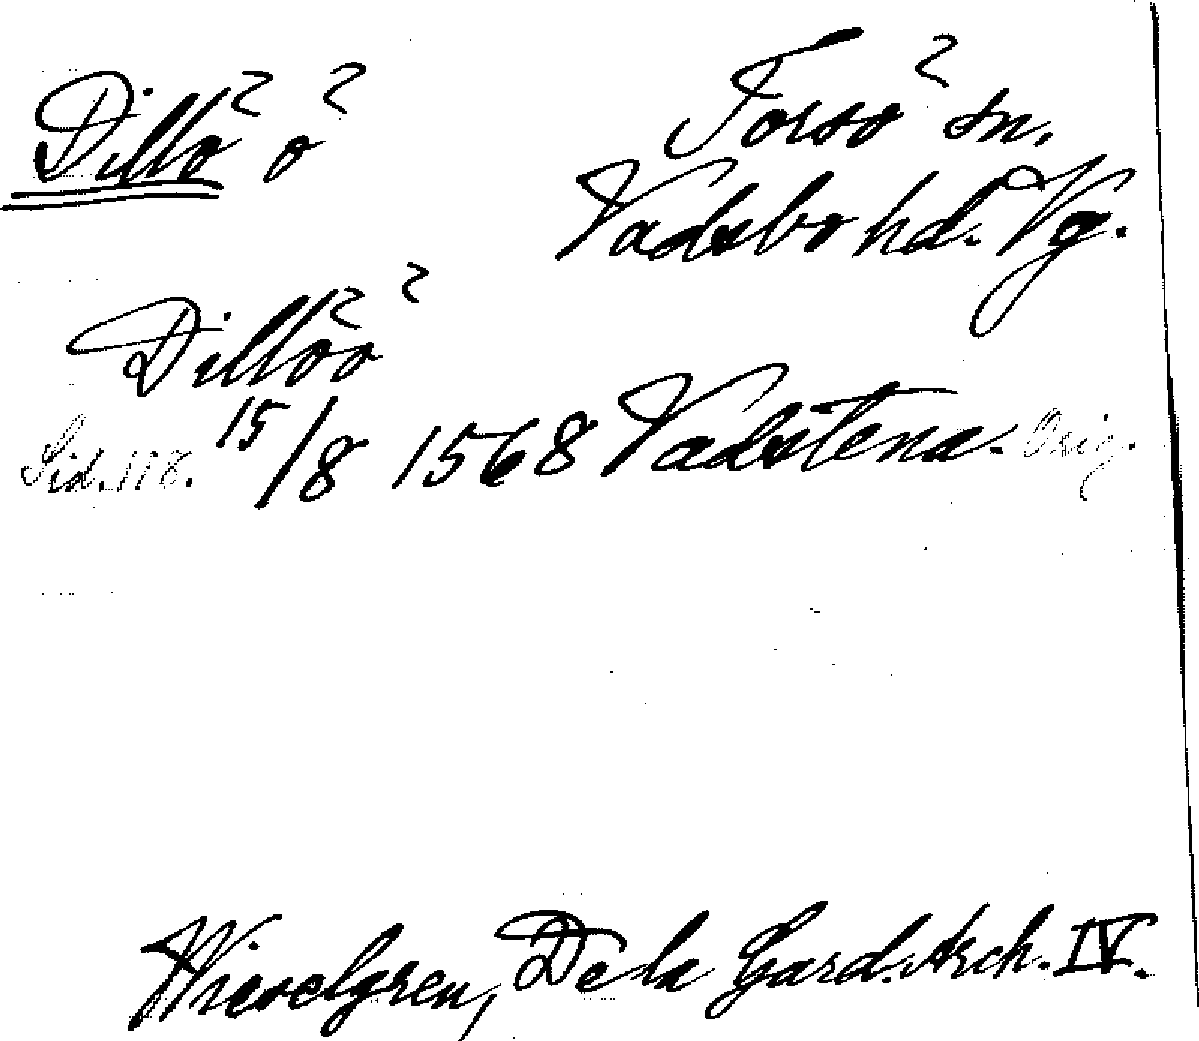 Dillö ö Torsö sn.
Vadsbo hd. Vg.
Dillöö
Sid. 118. 15/8 1568 Vadstena. Orig.
Wieselgren, De la Gard. Arch. IV.